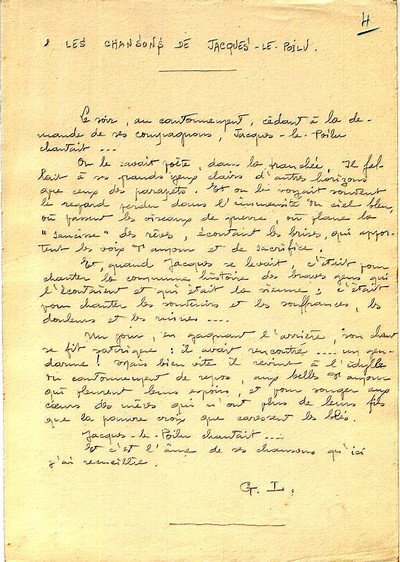 4
LES CHANSONS DE JACQUES-LE-POILU.
Ce soir, au cantonnement, cédant à la de-
mande de ses compagnons, Jacques-le-Poilu
chantait ...
On le savait poète, dans la tranchée. Il fal-
lait à ses grands yeux clairs d'autres horizons
que ceux des parapets. Et on lui voyait souvent
le regard perdu dans l'immensité du ciel bleu,
où passent les oiseaux de guerre, où plane la
"saucisse" des rêves, écoutant les brises, qui appor-
tent les voix d'amour et de sacrifice.
Et, quand Jacques se levait, c'était pour
chanter la commune histoire des braves gens qui
l'écoutaient et qui était la sienne : c'était
pour chanter les souvenirs et les souffrances, les
douleurs et les misères ....
Un jour, en gagnant l'arrière, son chant
se fit satirique : il avait rencontré .... un gen-
darme ! Mais bien vite il revint à l'idylle
du cantonnement de repos, aux belles d'amour
qui pleurent leurs espoirs, et pour songer aux
cœurs des mères qui n'ont plus de leurs fils
que la pauvre croix que caressent les blés.
Jacques-le-Poilu chantait ....
Et c'est l'âme de ses chansons qu'ici
j'ai recueillie.
G. L.